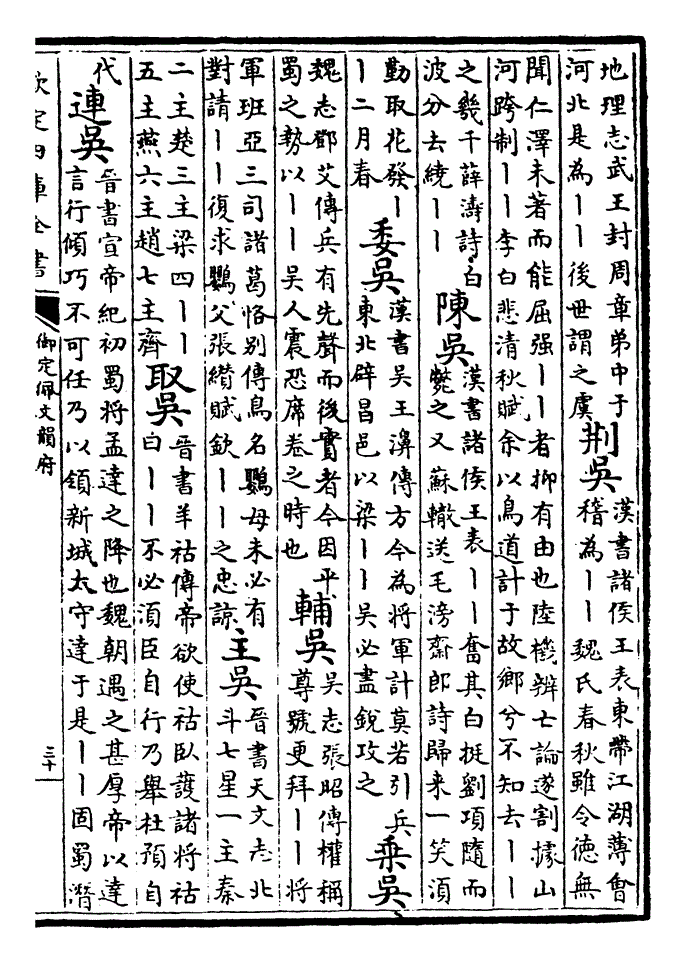 地理志武王封周章弟中于
河北是為丨丨後世謂之虞
荆吳
漢書諸侯王表東帶江湖薄會
稽為丨丨魏氏春秋雖令徳無
聞仁澤未著而能屈强丨丨者抑有由也陸機辨亡論遂割據山
河跨制丨丨李白悲清秋賦余以鳥道計于故鄉兮不知去丨丨
之幾千薛濤詩白
波分去繞丨丨
陳吳
漢書諸侯王表丨丨奮其白挺劉項隨而
斃之又蘇轍送毛滂齋郎詩歸来一笑須
勤取花發丨
丨二月春
委吳
漢書吳王濞傳方今為將軍計莫若引兵
東北辟昌邑以梁丨丨吳必盡銳攻之
乘吳
魏志鄧艾傳兵有先聲而後實者今因平
蜀之勢以丨丨吳人震恐席卷之時也
輔吳
吳志張昭傳權稱
尊號更拜丨丨將
軍班亞三司諸葛恪别傳鳥名鸚母未必有
對請丨丨復求鸚父張纉賦欽丨丨之忠諒
主吳
晉書天文志北
斗七星一主秦
二主楚三主梁四丨丨
五主燕六主趙七主齊
取吳
晉書羊祜傳帝欲使祜卧護諸將祜
曰丨丨不必須臣自行乃舉杜預自
代
連吳
晉書宣帝紀初蜀將孟達之降也魏朝遇之甚厚帝以達
言行傾巧不可任乃以領新城太守達于是丨丨固蜀潛
欽定四庫全書
御定佩文韻府
三十